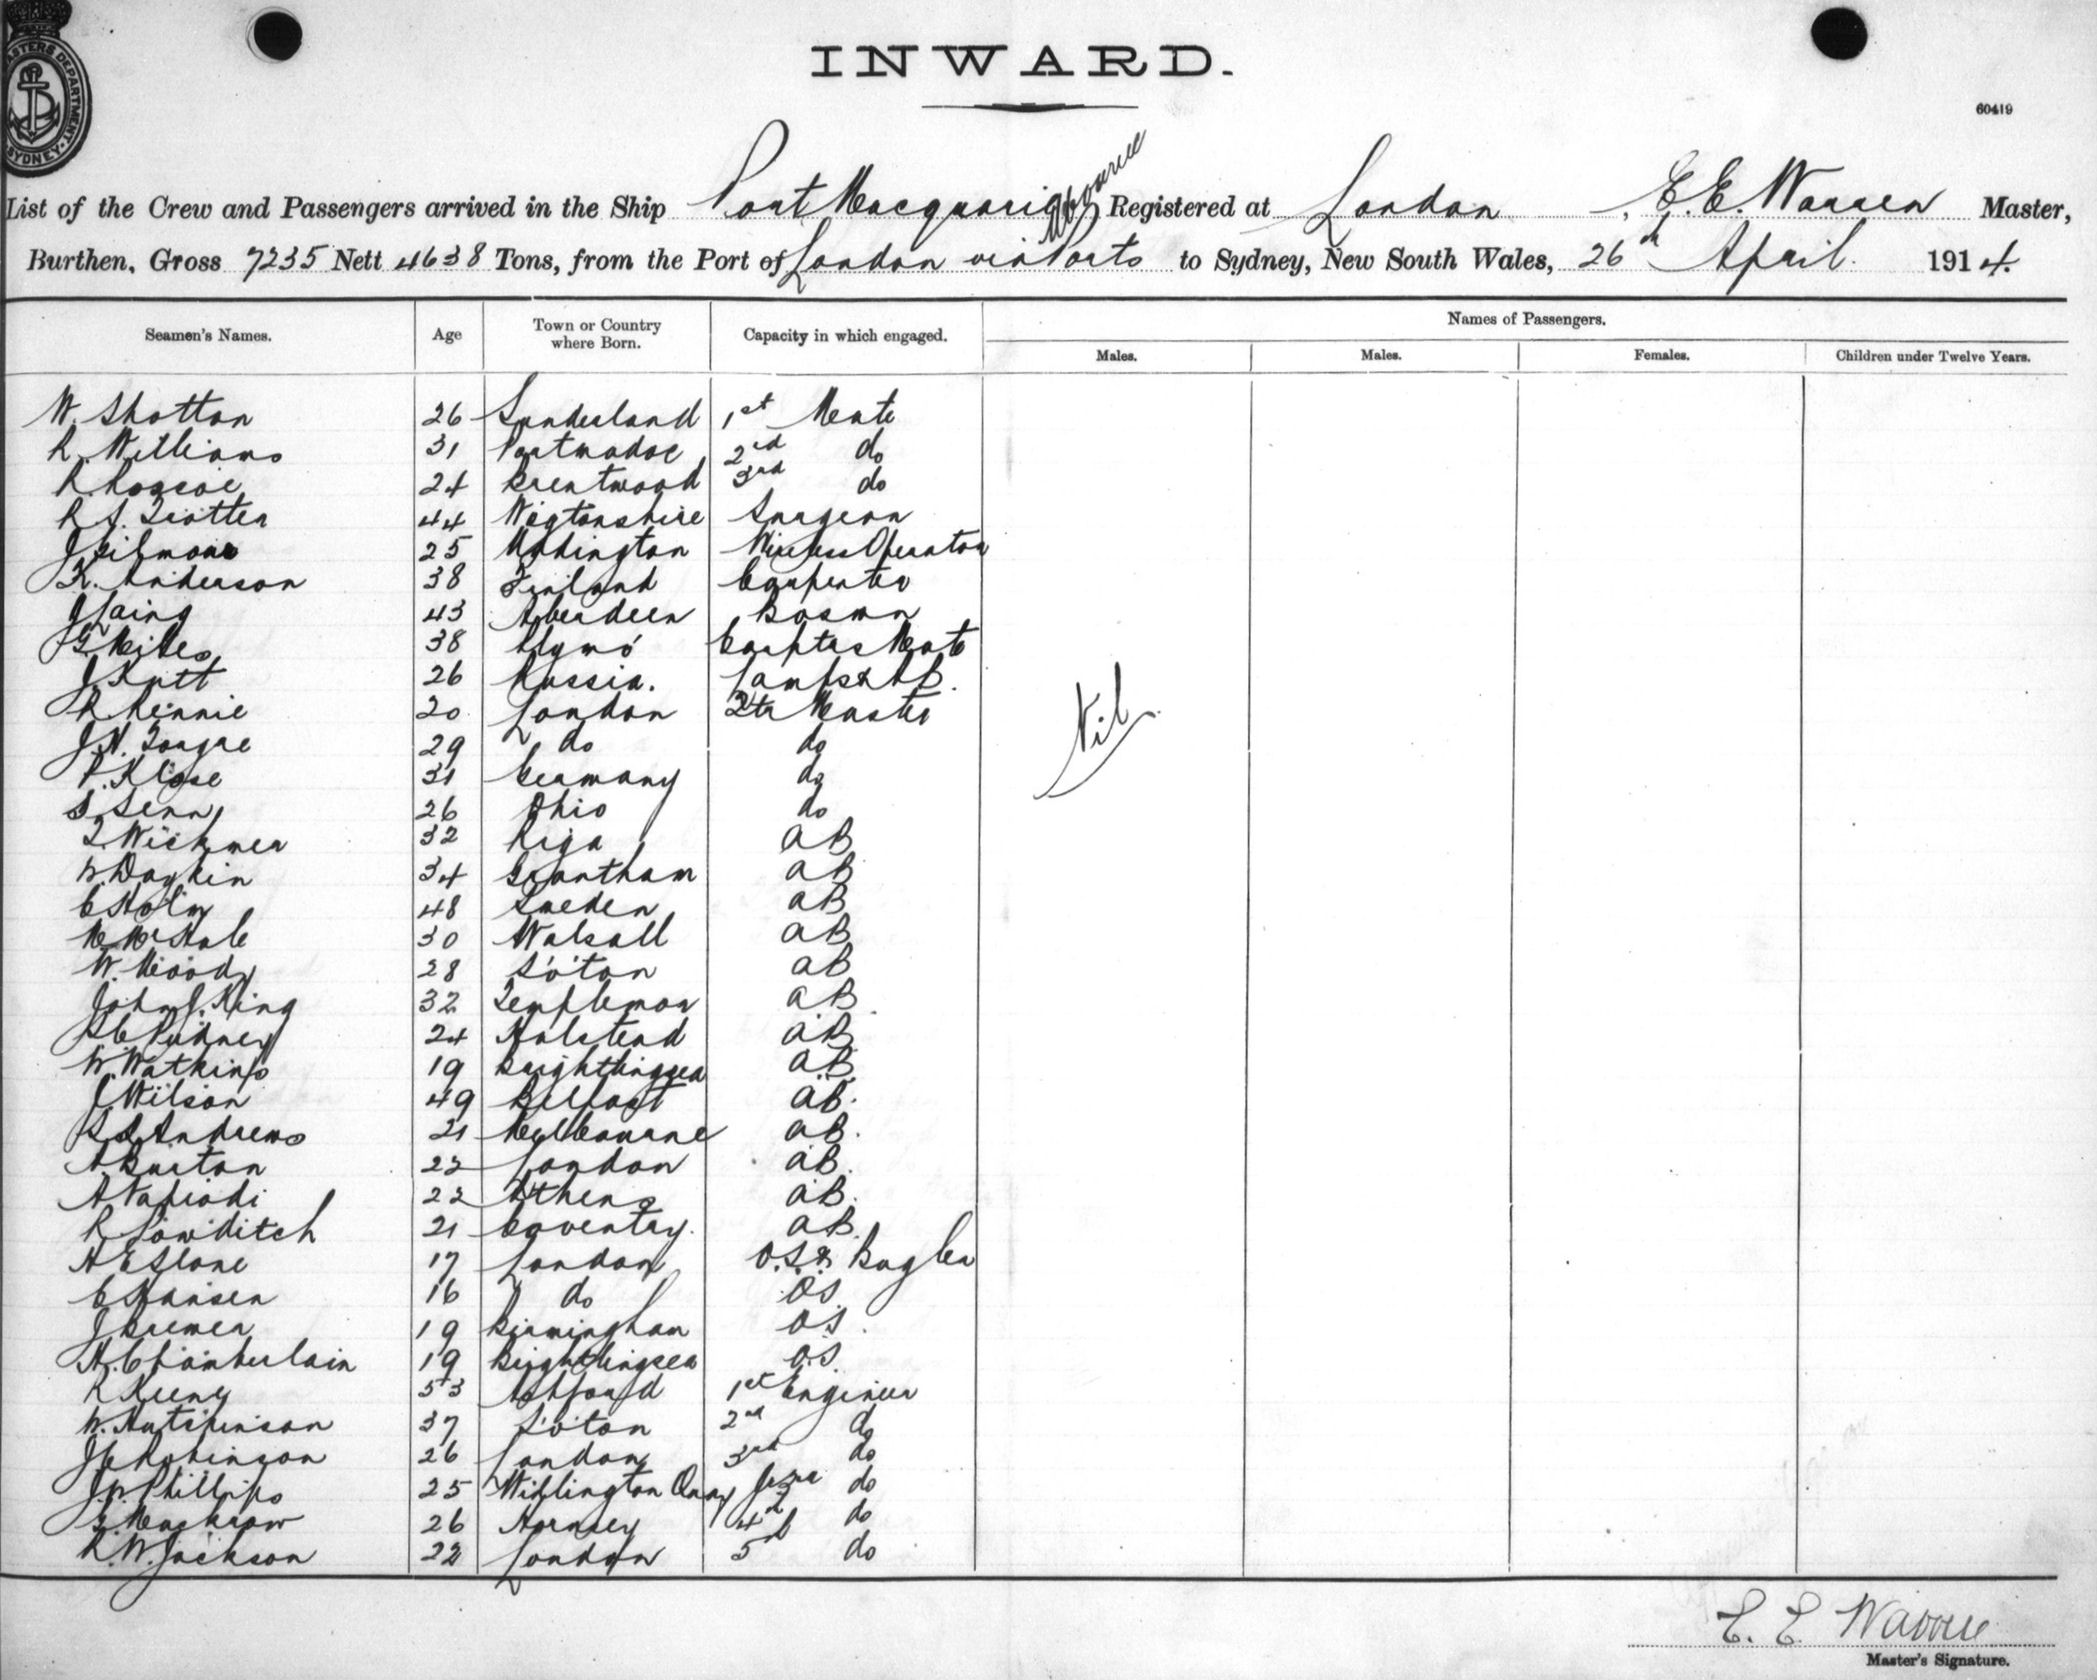 MASTERS DEPARTMENT. SYDNEY.
INWARD.
60419
List of the Crew and Passengers arrived in the Ship Port Macquarie Registered at London, E. E. Warren Master,
Burthen, Gross 7235 Nett 4638 Tons, from the Port of London via Ports to Sydney, New South Wales, 26th April 1914.
Seamen's Names. Age Town or Country where Born. Capacity in which engaged. Names of Passengers.
Males. Males. Females. Children under Twelve Years.
W. Shotton 26 Sunderland 1st Mate
R. Williams 31 Portmadoc 2nd do
R. Roscoe 24 Brentwood 3rd do
R. S. Trotter 44 Wigtonshire Surgeon
J Gilmore 25 Addington Wireless Operator
K. Anderson 38 Finland Carpenter
J Laing 43 Aberdeen Bosun
G. Miles 38 Plymo' Carptrs Mate
J Kutt 26 Russia. Lamps & AB.
R Rennie 20 London Qtr Master
J. H. Tongue 29 do do
P. Klose 31 Germany do
S. Senn 26 Ohio do
T. Wichmer 32 Riga AB
W. Daykin 34 Grantham AB
C Holm 48 Sweden AB
M McHale 30 Walsall AB
W. Moody 28 So'ton AB
John J. King 32 Templemor AB.
Pudney 24 Halstead AB
W. Watkins 19 Brightlingsea AB.
J Wilson 49 Belfast AB.
Andrews 21 Melbourne AB.
A Burton 22 London AB.
A Vafiadi 22 Athens AB.
R Bowditch 21 Coventry. AB.
A E Slone 17 London O.S. & Bugler
C Hansen 16 do OS
J Bremer 19 Birmingham OS.
H. Chamberlain 19 Brightlingsea OS
R Keeny 53 Ashford 1st Engineer
W. Hutchinson 37 So'ton 2nd do
J C Robinson 26 London 3rd do
J. W. Phillips 25 Willington Quay Jr 3rd do
Mackrow 26 Hornsey 4th do
R. W. Jackson 22 London 5th do
Nil
E. E. Warren
Master's Signature.